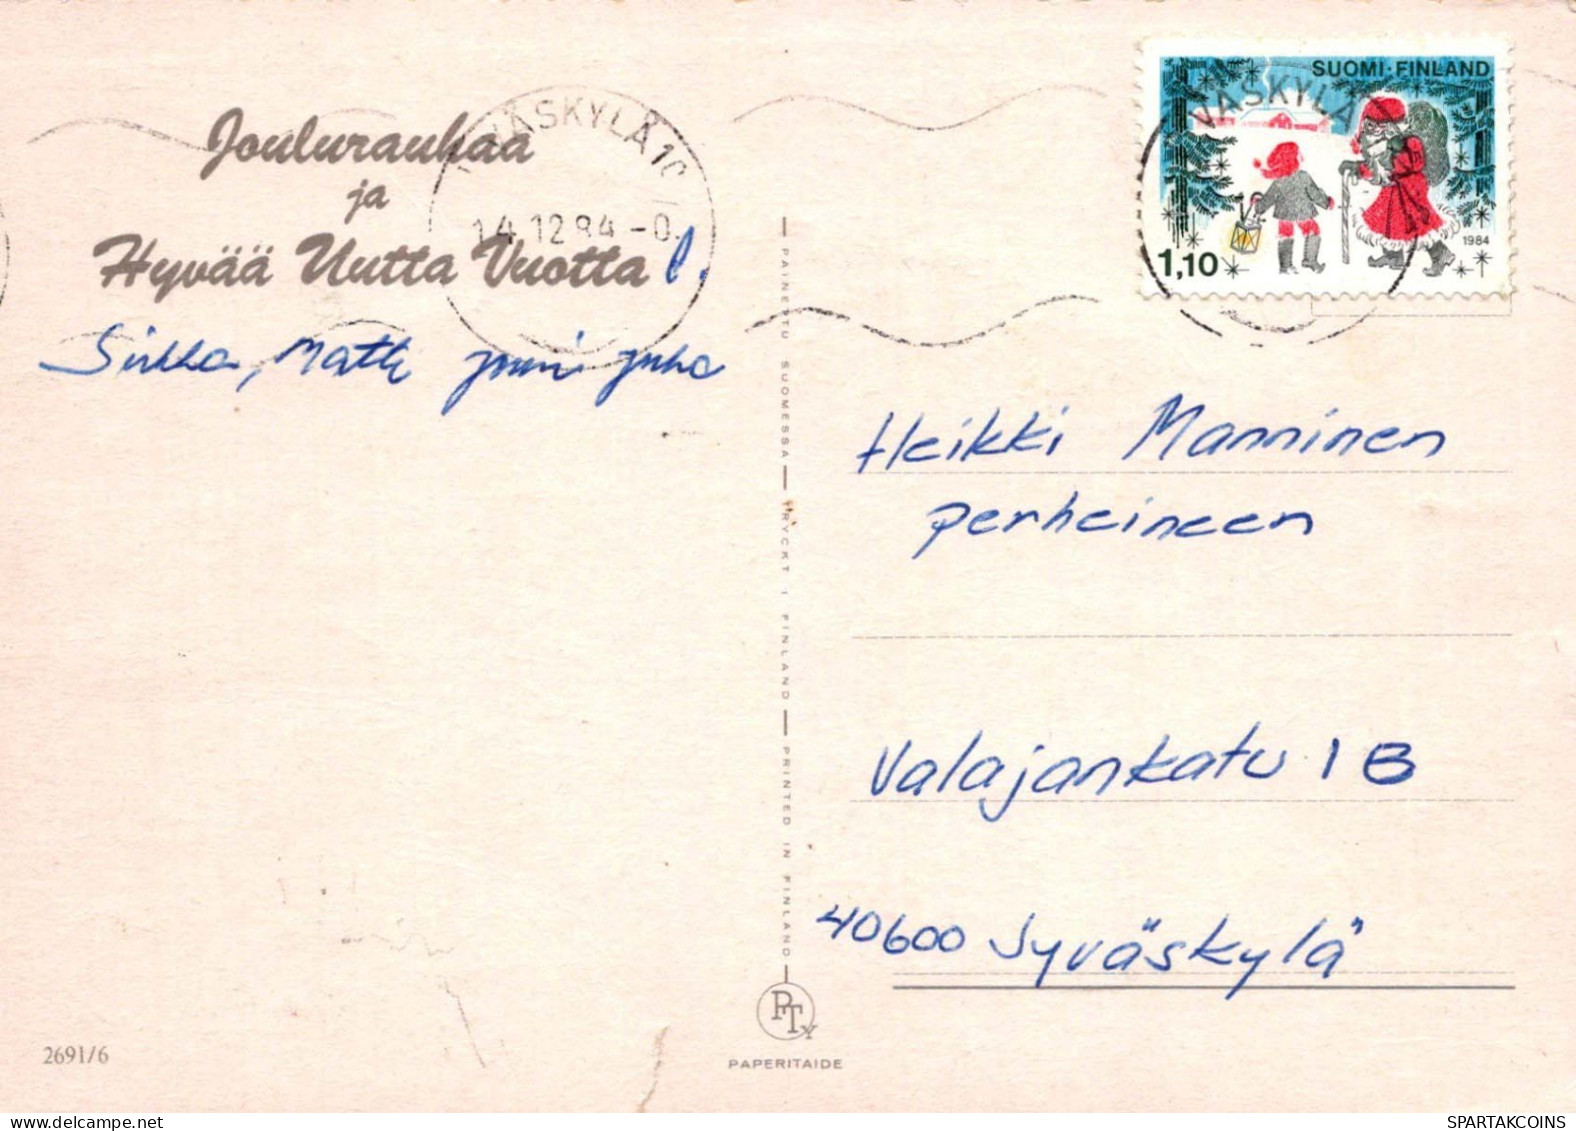 Joulurauhaa
ja
Hyvää Uutta Vuotta
Sirkka, Matti Jouni Juha
JYVÄSKYLÄ 10
14.12.84 -0
SUOMI·FINLAND
1,10
1984
VÄSKYLÄ
PAINETTU SUOMESSA — TRYCKT I FINLAND — PRINTED IN FINLAND
Heikki Manninen
perheineen
Valajankatu 1 B
40600 Jyväskylä
PTy
PAPERITAIDE
2691/6
WWW.SPARTAKCOINS.COM